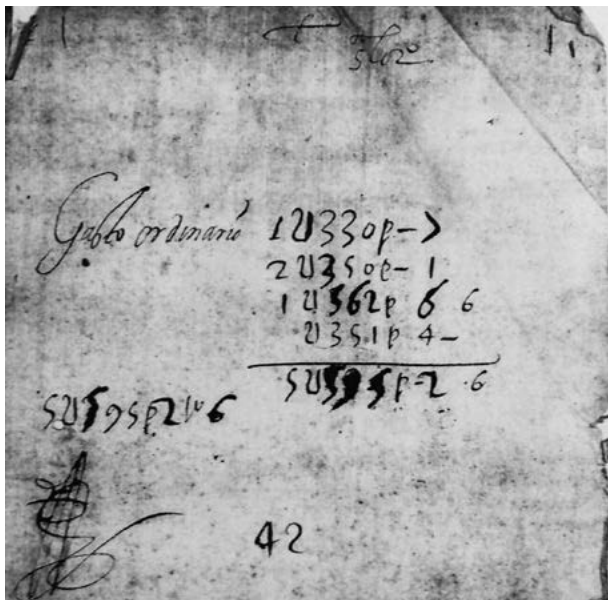 Gasto ordinario 1U330p-7
2U350p-1
1U562p 6 6
U351p 4-
5U595p-2 6
5U595p2 6
42